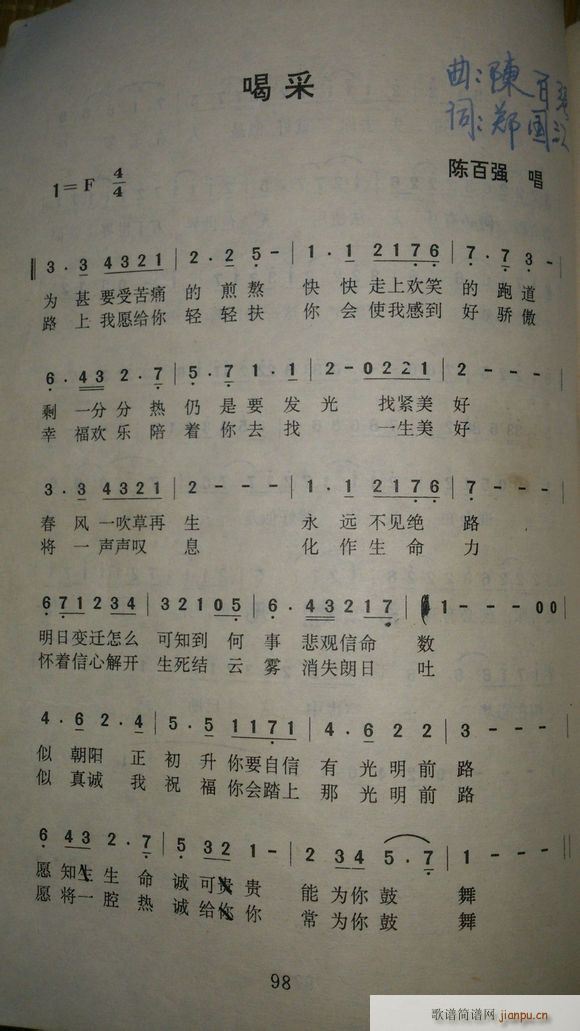 喝采
曲：陳百強
词：郑国江
陈百强 唱
1=F 4/4
3·3 4321 | 2·2 5- | 1·1 2176 | 7·7 3- |
为甚要受苦痛的煎熬 快快走上欢笑的跑道
路上我愿给你轻轻扶 你会使我感到好骄傲
6·43 2·7 | 5·7 1·1 | 2-0221 | 2--- |
剩一分分热仍是要发光 找紧美好
幸福欢乐陪着你去找 一生美好
3·3 4321 | 2--- | 1·1 2176 | 7--- |
春风一吹草再生 永远不见绝路
将一声声叹息 化作生命力
671234 | 32105 | 6·43217 | 1---00 |
明日变迁怎么可知到何事悲观信命数
怀着信心解开生死结云雾消失朗日吐
4·6 2·4 | 5·5 1171 | 4·6 2 2 | 3--- |
似朝阳正初升你要自信有光明前路
似真诚我祝福你会踏上那光明前路
6 43 2·7 | 5 32 1- | 2 34 5·7 | 1--- ||
愿知生生命诚可贵贵 能为你鼓舞
愿将一腔热诚给你你 常为你鼓舞
98
歌谱简谱网
jianpu.cn